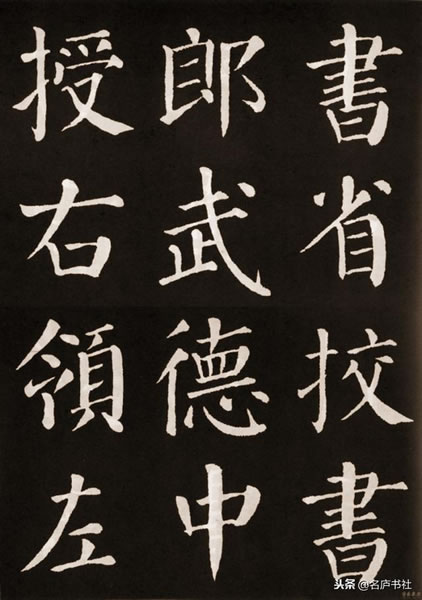 書省挍書
郎武德中
授右領左
头条@名庐书社